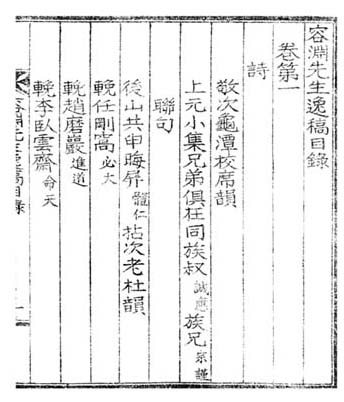 容淵先生逸稿目錄
卷第一
詩
敬次龜潭校席韻
上元小集兄弟俱在同族叔誠應族兄宗謹
聯句
後山共申晦屏龍仁拈次老杜韻
輓任剛窩必大
輓趙磨巖進道
輓李臥雲齋命天
容淵先生逸稿目錄